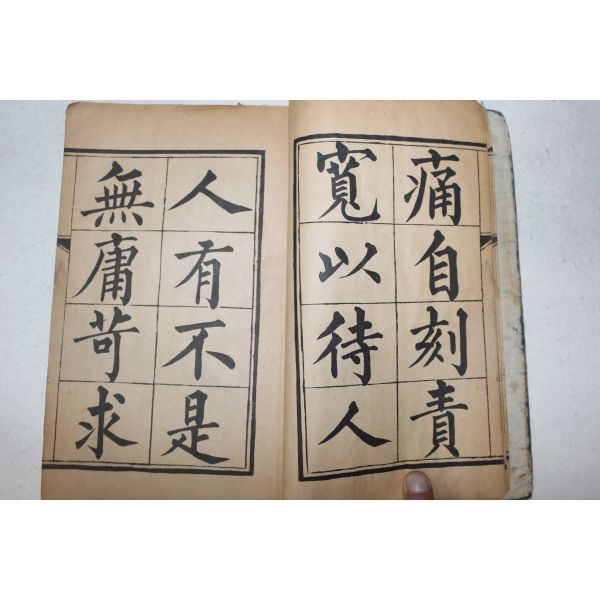 痛自刻責
寬以待人
人有不是
無庸苛求